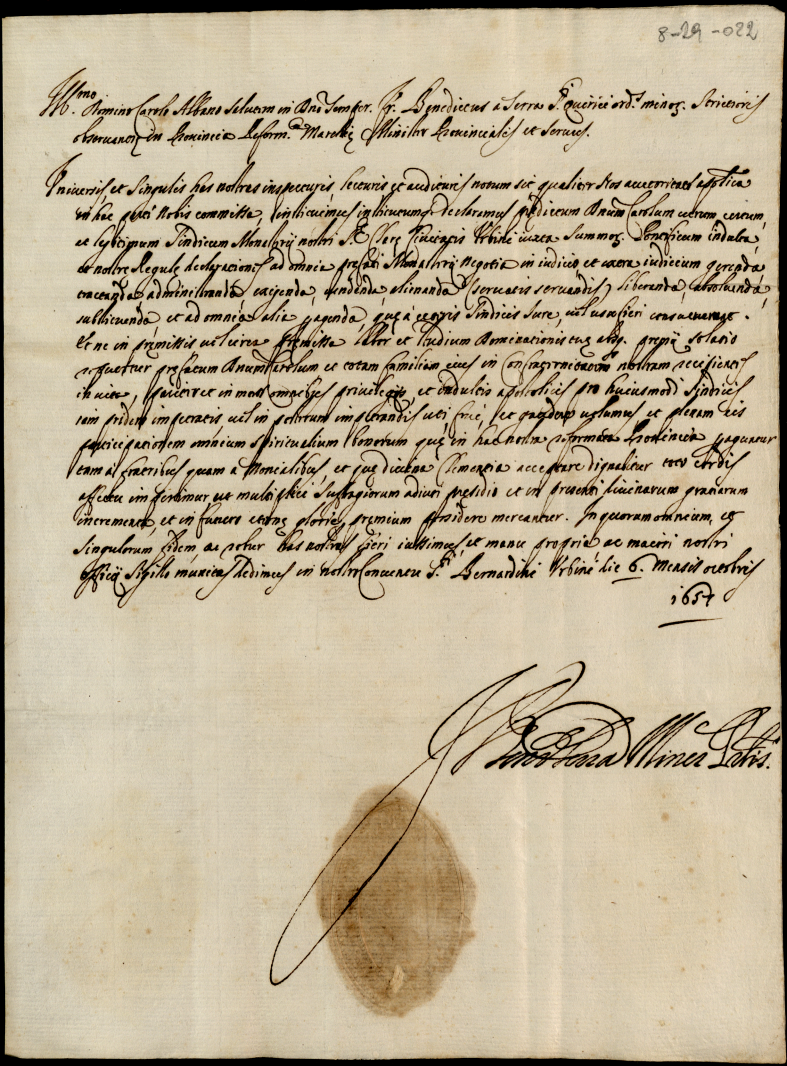 8-29-022
Ill.mo Domino Carolo Albano salutem in Dno sempiter. Fr. Benedictus a Serra S. Quirici ord.s minoꝝ. Strictioris
observanꝝ Provinciæ Reform.æ Marchiæ Minister Provincialis et servus.
Universis et singulis has nostras inspecturis, lecturis, et audituris notum sit qualiter Nos auctoritate aplica
in hac parte nobis commissa, instituimus institutumq; declaramus prædictum Dnum Carolum verum, certum,
et legitimum Sindicum Monasterij nostri S.æ Claræ Civitatis Urbini iuxta summoꝝ. Pontificum indulta,
et nostræ Regulæ declarationes ad omnia præfati Monasterij negotia in iudicio et extra iudicium gerenda
tractanda, administranda exigenda, vendenda alienanda (servatis servandis) liberanda, absolvenda,
substituenda, et ad omnia alia peragenda, quæ a ceteris Sindicis iure, vel usu fieri consueverunt.
Et ne in præmissis vel circa præmissa labor et studium Dominationis tuæ absq. præmij solatio
præfatum Dnum Carolum et totam familiam eius in Confraternitatem nostram recipientes
in vita, pariter et in morte omnibus privilegijs, et indultis apostolicis pro huiusmodi Sindicis
iam pridem impetratis vel in posterum impetrandis uti frui, et gaudere volumus et plenam eis
participationem omnium spiritualium bonorum quæ in hac nostra reformata Provincia peraguntur
tam a fratribus quam a Monialibus, et quæ divina Clementia acceptare dignabitur toto cordis
affectu impertimur ut multiplici suffragiorum adiuti præsidio et in præsenti divinarum gratiarum
incrementa, et in futuro æternæ gloriæ præmium possidere mereantur. In quorum omnium, et
singulorum fidem, ac robur has nostras fieri iussimus, et manu propria ac maiori nostri
officij Sigillo munitas dedimus in nostro Conventu S.ti Bernardini Urbini die 6. Mensis octobris
1657